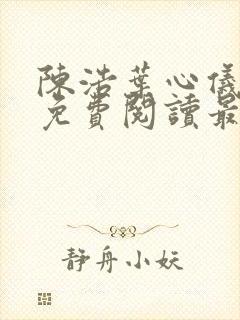 陳浩葉心儀
免費閱讀最
静舟小妖